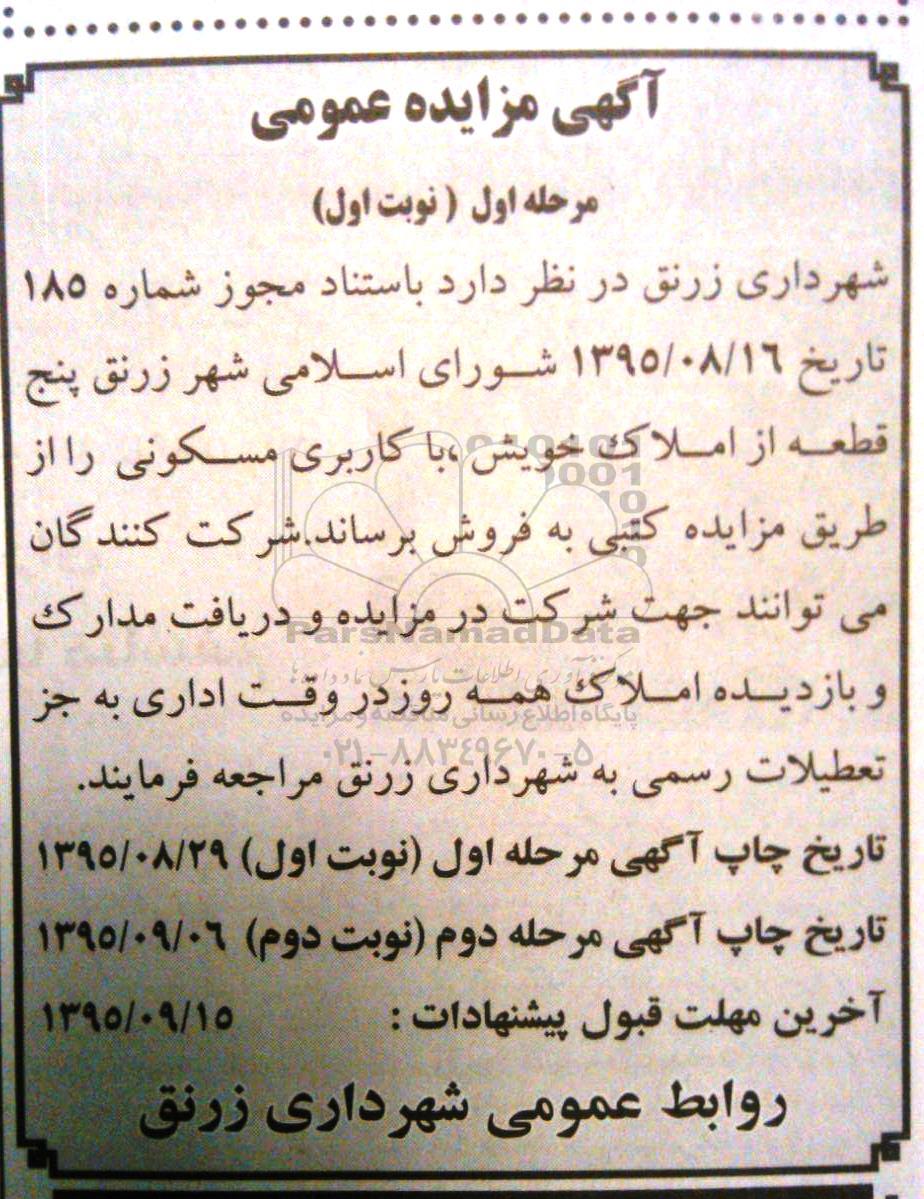 آگهی مزایده عمومی
مرحله اول (نوبت اول)
شهرداری زرنق در نظر دارد باستناد مجوز شماره ۱۸۵
تاریخ ۱۳۹۵/۰۸/۱۶ شورای اسلامی شهر زرنق پنج
قطعه از املاک خویش ،با کاربری مسکونی را از
طریق مزایده کتبی به فروش برساند.شرکت کنندگان
می توانند جهت شرکت در مزایده و دریافت مدارک
ParsNamadData
و بازدیده املاک همه روزدر وقت اداری به جز
پایگاه اطلاع رسانی مناقصه و مزایده
۰۲۱-۸۸۳۴۹۶۷۰-۵
تعطیلات رسمی به شهرداری زرنق مراجعه فرمایند.
تاریخ چاپ آگهی مرحله اول (نوبت اول) ۱۳۹۵/۰۸/۲۹
تاریخ چاپ آگهی مرحله دوم (نوبت دوم) ۱۳۹۵/۰۹/۰۶
آخرین مهلت قبول پیشنهادات : ۱۳۹۵/۰۹/۱۵
روابط عمومی شهرداری زرنق